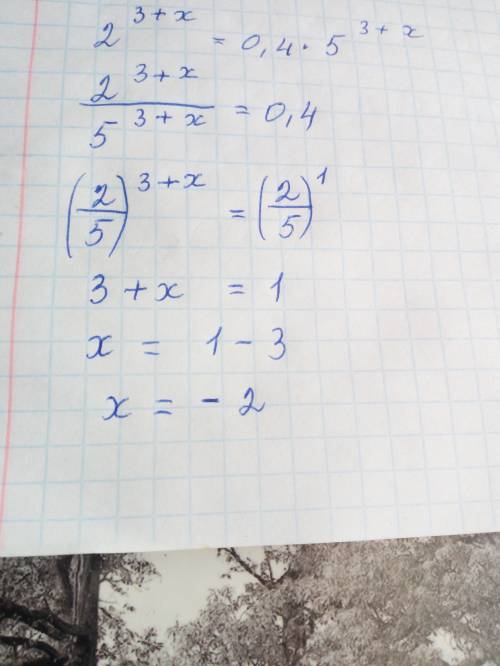 2^{3+x} = 0,4 · 5^{3+x}
\frac{2^{3+x}}{5^{3+x}} = 0,4
(\frac{2}{5})^{3+x} = (\frac{2}{5})^1
3 + x = 1
x = 1 - 3
x = - 2